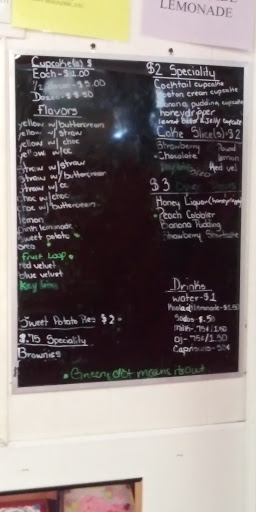 LEMONADE
Cupcake(s) $
Each-$1.00
1/2 $5.00
Flavors
yellow w/buttercream
yellow w/straw
yellow w/choc
yellow w/cc
straw w/straw
straw w/buttercream
straw w/cc
choc w/choc
choc w/buttercream
lemon
pink lemonade
sweet potato
oreo
Fruit Loop
red velvet
blue velvet
Key lime
Sweet Potato Pies $2
$.75 Speciality
Brownies
$2 Speciality
Cocktail cupcake
Boston cream cupcake
Banana pudding cupcake
honeydripper
Peanut butter & Jelly cupcake
Cake Slice(s)-$2
Strawberry Pound
Chocolate lemon
Red vel
Oreo
$3
Honey Liquor
Peach Cobbler
Banana Pudding
Strawberry Shortcake
Drinks
Water-$1
Sodas-$.50
Milk-.75¢/1.50
OJ-.75¢/1.50
Caprisuns-50¢
Green dot means its out